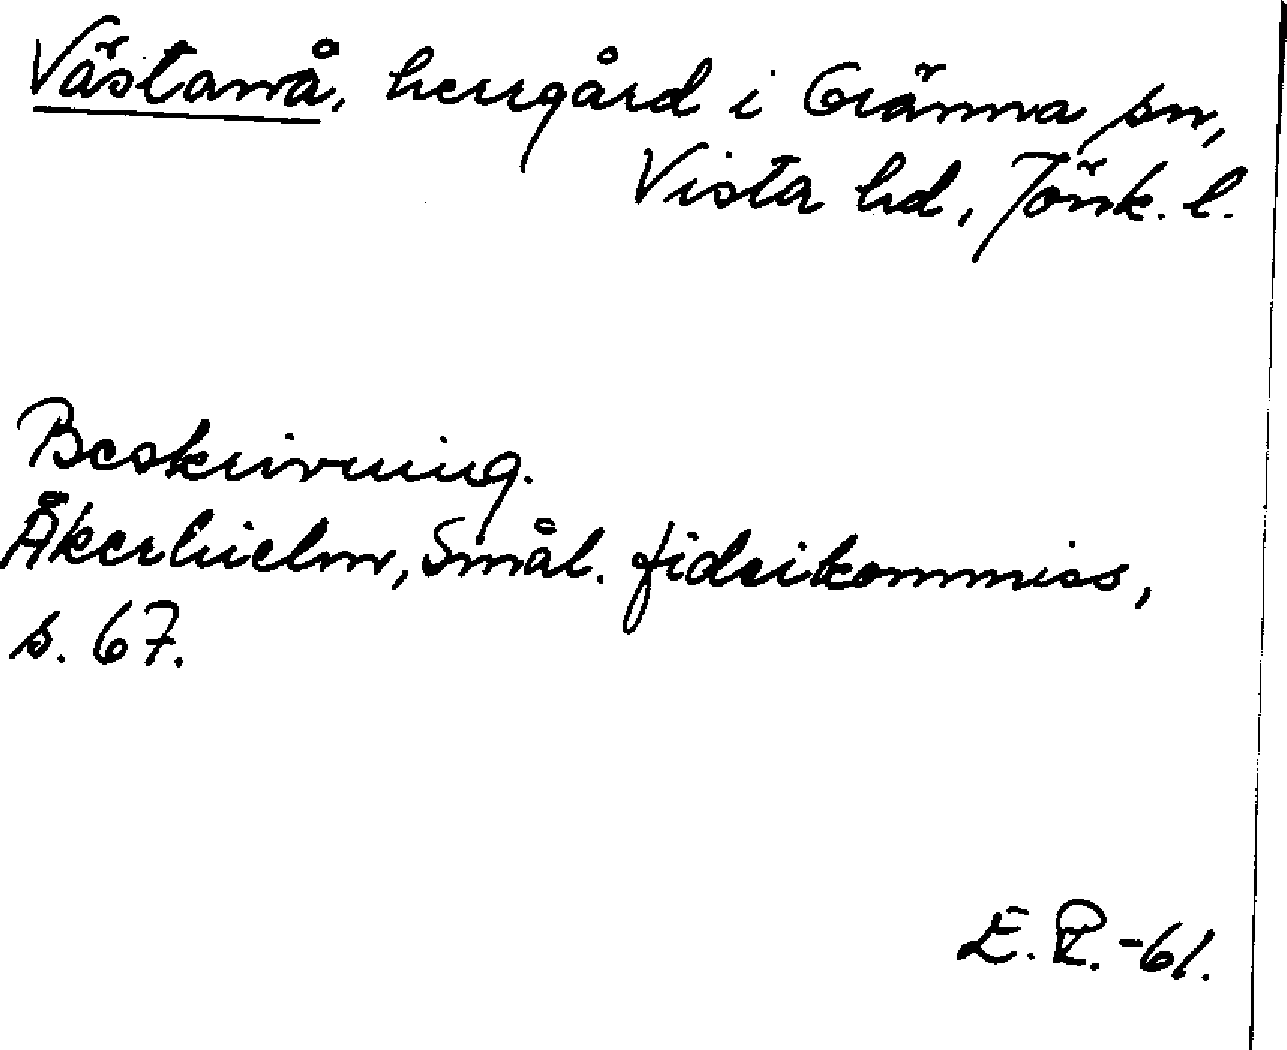 Västanå, herrgård i Gränna sn,
Vista hd, Jönk. l.
Beskrivning.
Åkerhielm, Smål. fideikommiss,
s. 67.
E. R. -61.